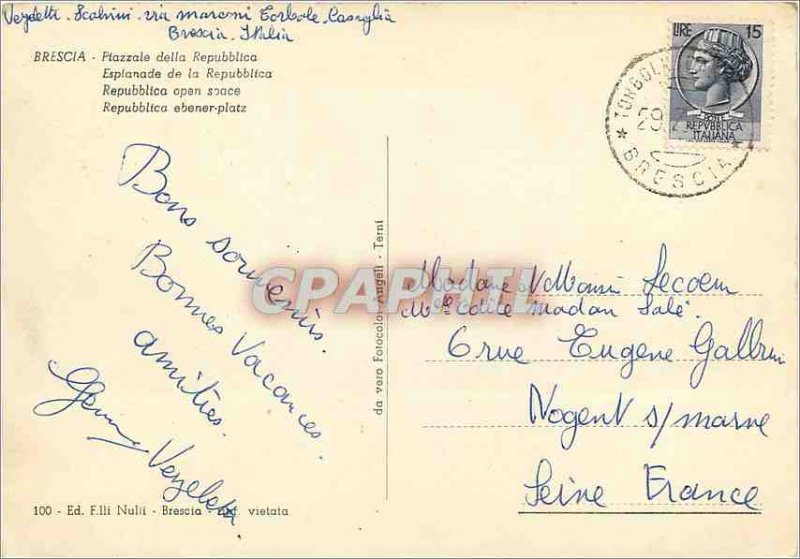 Scalvini via marconi Torbole Casaglia
Brescia. Italia
BRESCIA - Piazzale della Repubblica
Esplanade de la Repubblica
Repubblica open space
Repubblica ebener-platz
LIRE 15
POSTE
REPVBBLICA
ITALIANA
29
* BRESCIA *
Bons souvenirs.
Bonnes Vacances.
amitiés.
da vero Fotocolor Angeli - Terni
CPAPHIL
Madame
6 rue Eugene
Nogent s/marne
Seine France
100 - Ed. F.lli Nulli - Brescia - vietata